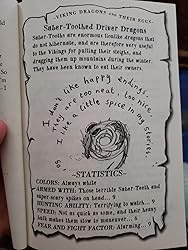 VIKING DRAGONS AND THEIR EGGS
Saber-Toothed Driver Dragons
Saber-Tooths are enormous lionlike dragons that
do not hibernate, and are therefore very useful
to the Vikings for pulling their sleighs, and
dragging them up mountains during the winter.
They have been known to eat their owners.
I don't like happy endings.
They are too neat, too nice.
I like a little spice in my stories.
~STATISTICS~
COLORS: Always white
ARMED WITH: Those terrible Saber-Teeth and
spear-scary spikes on head... 7
HUNTING ABILITY: Terrifying to watch... 9
SPEED: Not as quick as some, and their heavy
teeth makes them slow to maneuver... 6
FEAR AND FIGHT FACTOR: Alarming... 9